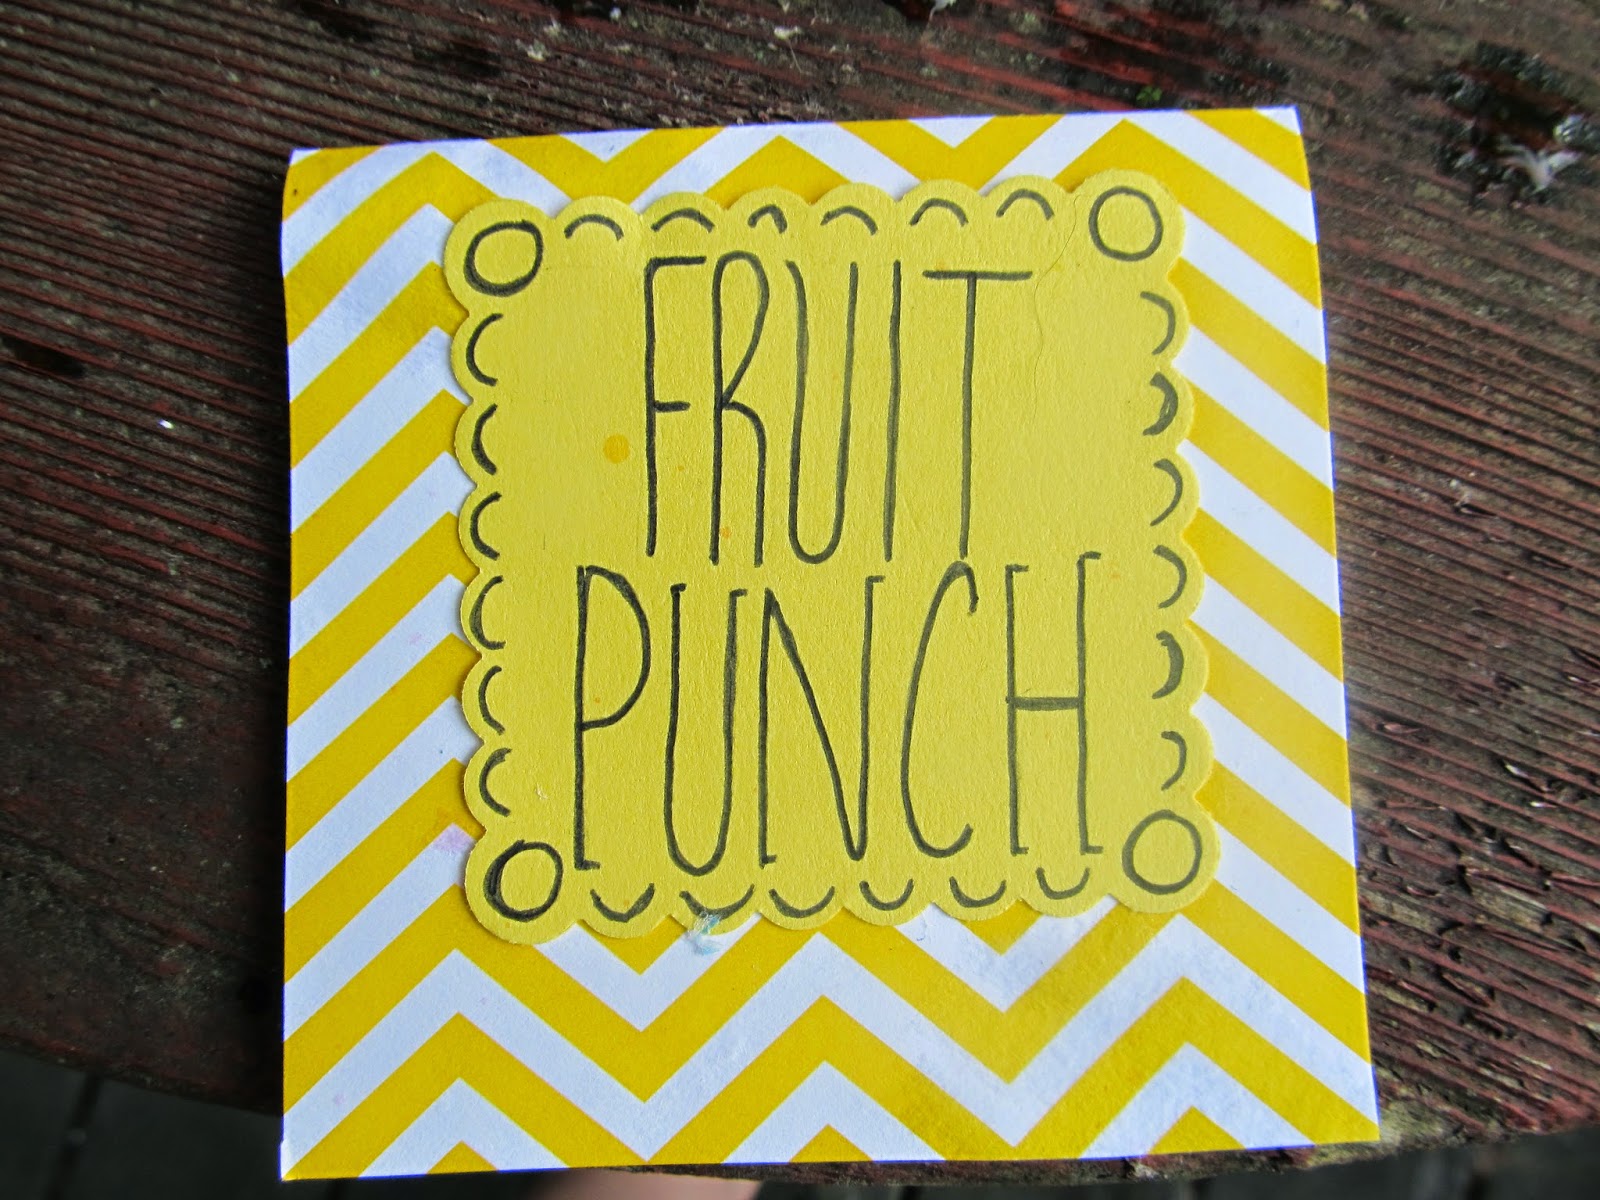 FRUIT
PUNCH